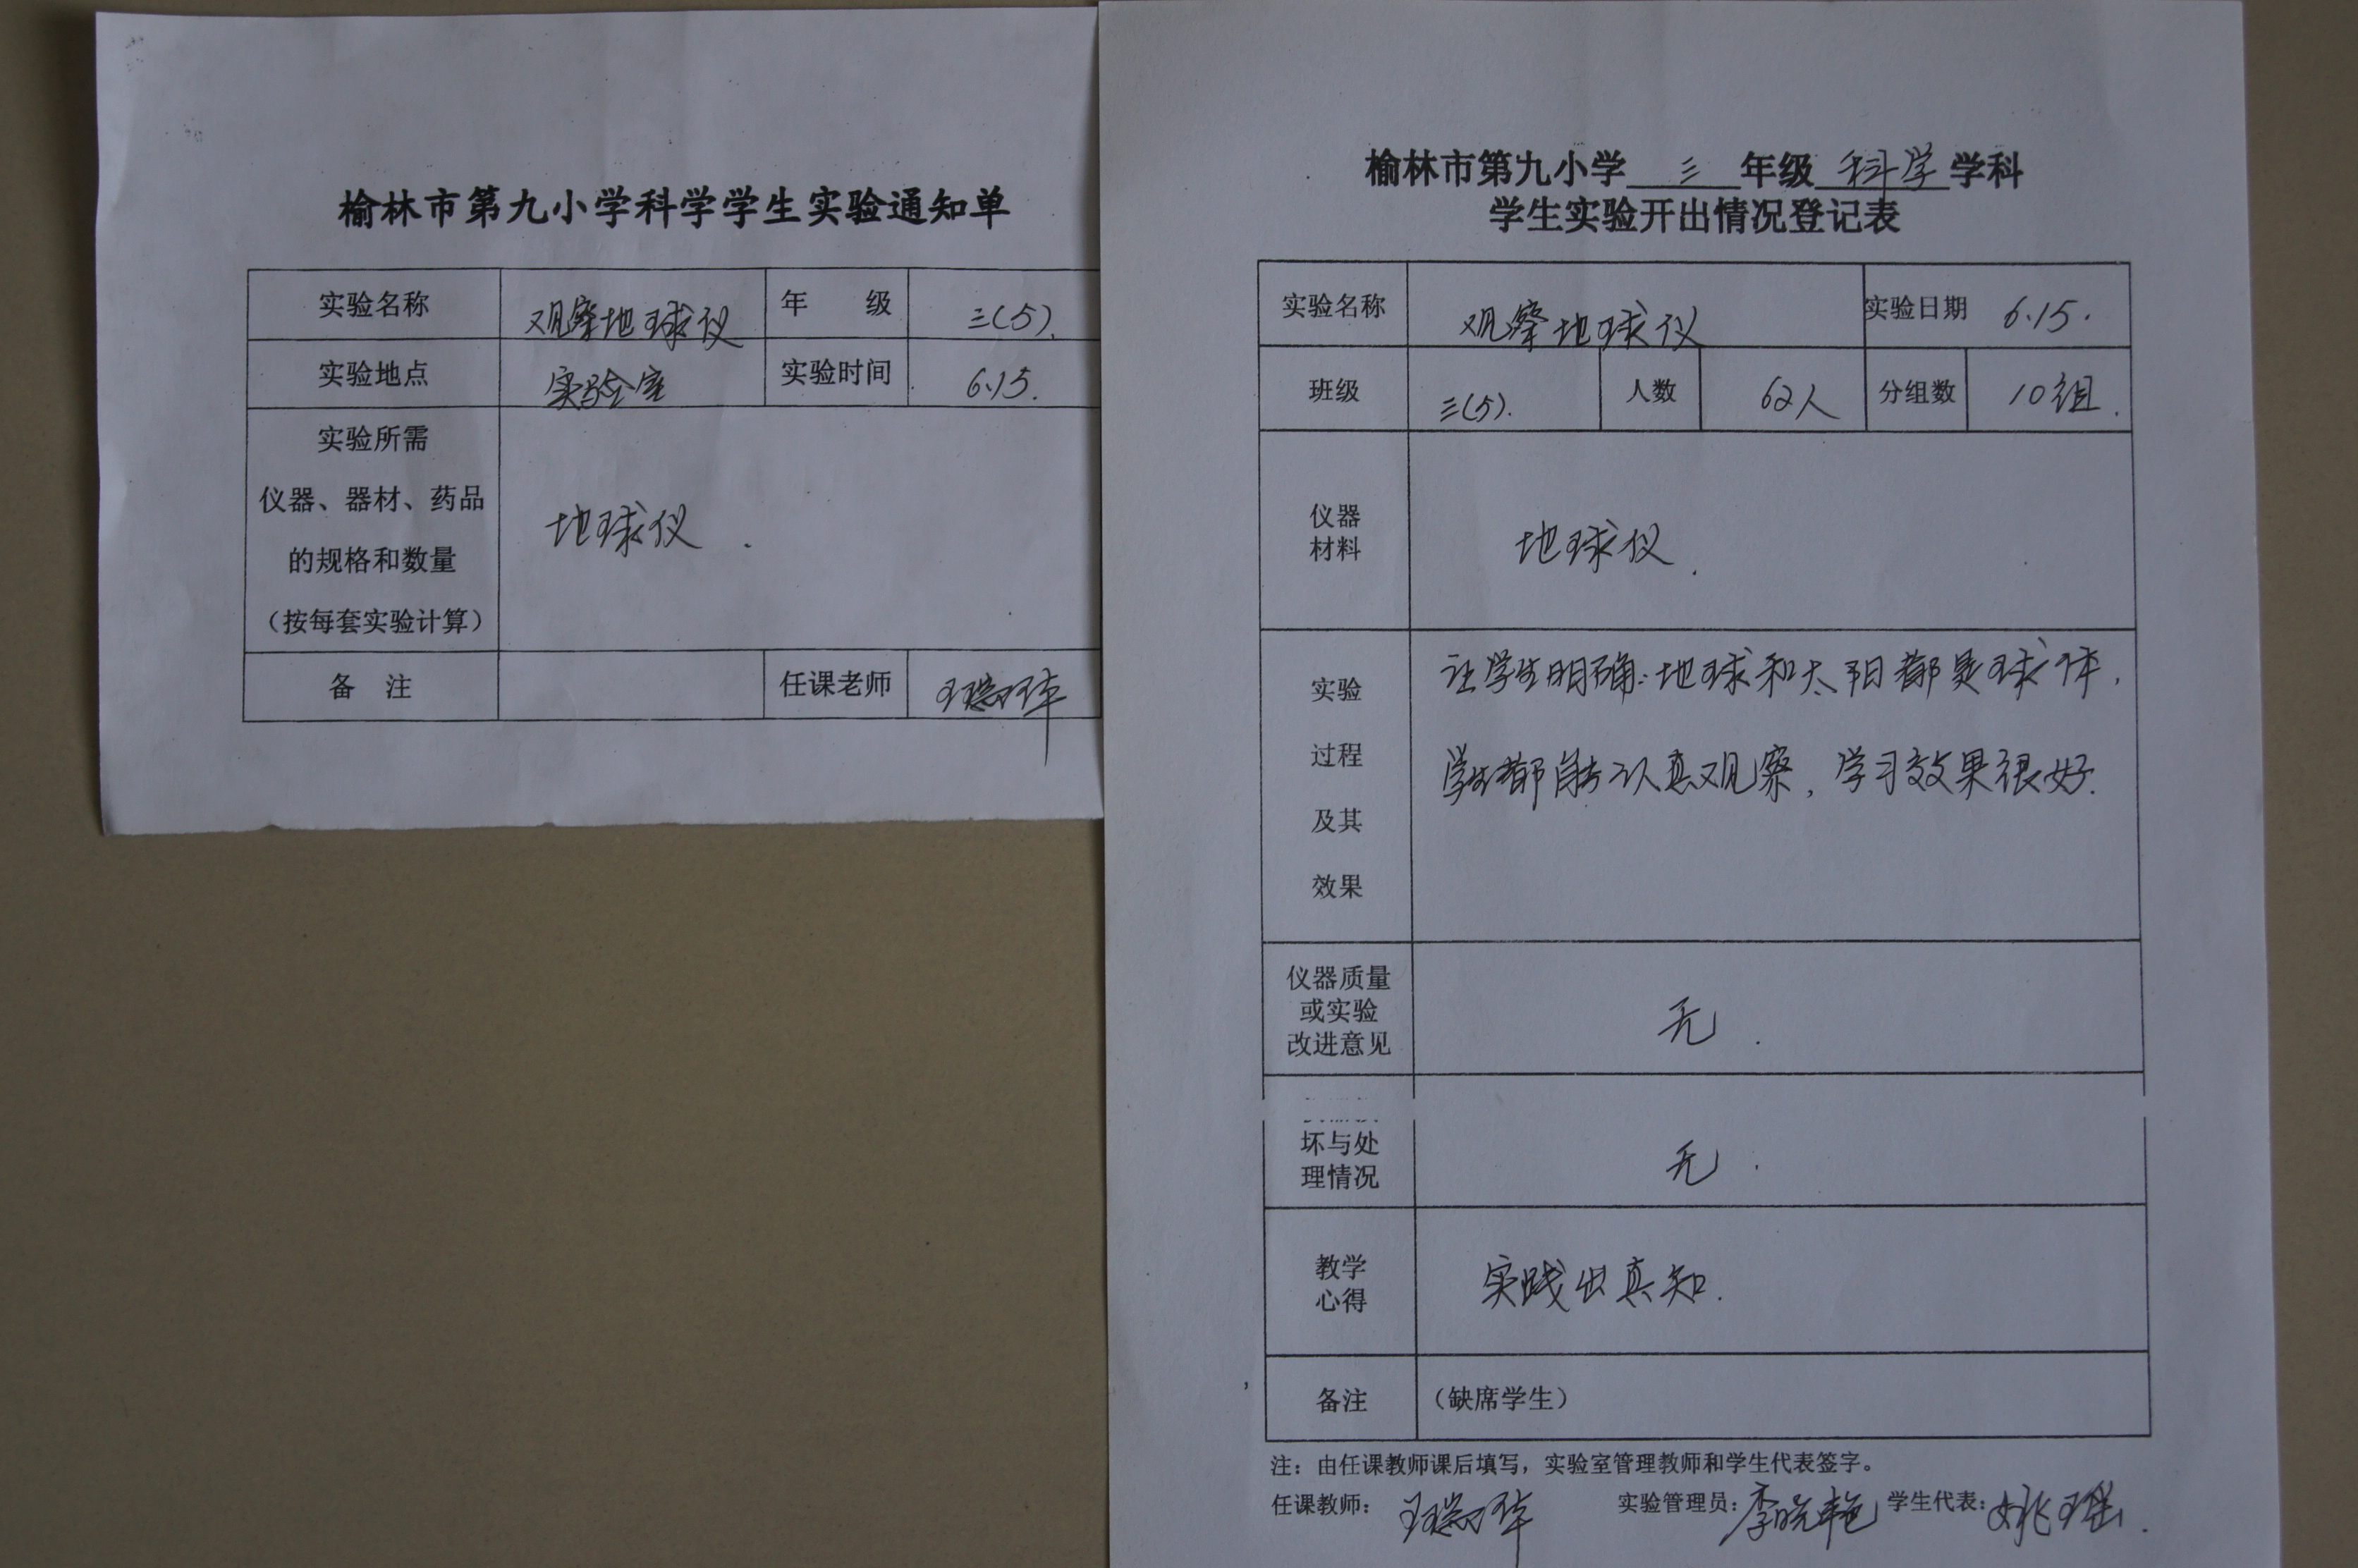 榆林市第九小学科学学生实验通知单
实验名称 观察地球仪 年 级 三(5).
实验地点 实验室 实验时间 6.15.
实验所需
仪器、器材、药品
的规格和数量
（按每套实验计算）
地球仪.
备 注 任课老师
榆林市第九小学 三 年级 科学 学科
学生实验开出情况登记表
实验名称 观察地球仪 实验日期 6.15.
班级 三(5). 人数 62人 分组数 10组.
仪器
材料
地球仪.
实验
过程
及其
效果
让学生明确:地球和太阳都是球体,
学生都能认真观察,学习效果很好.
仪器质量
或实验
改进意见
无.
坏与处
理情况
无.
教学
心得
实践出真知.
备注 （缺席学生）
注：由任课教师课后填写，实验室管理教师和学生代表签字。
任课教师： 实验管理员：李晓艳 学生代表：姚瑶.